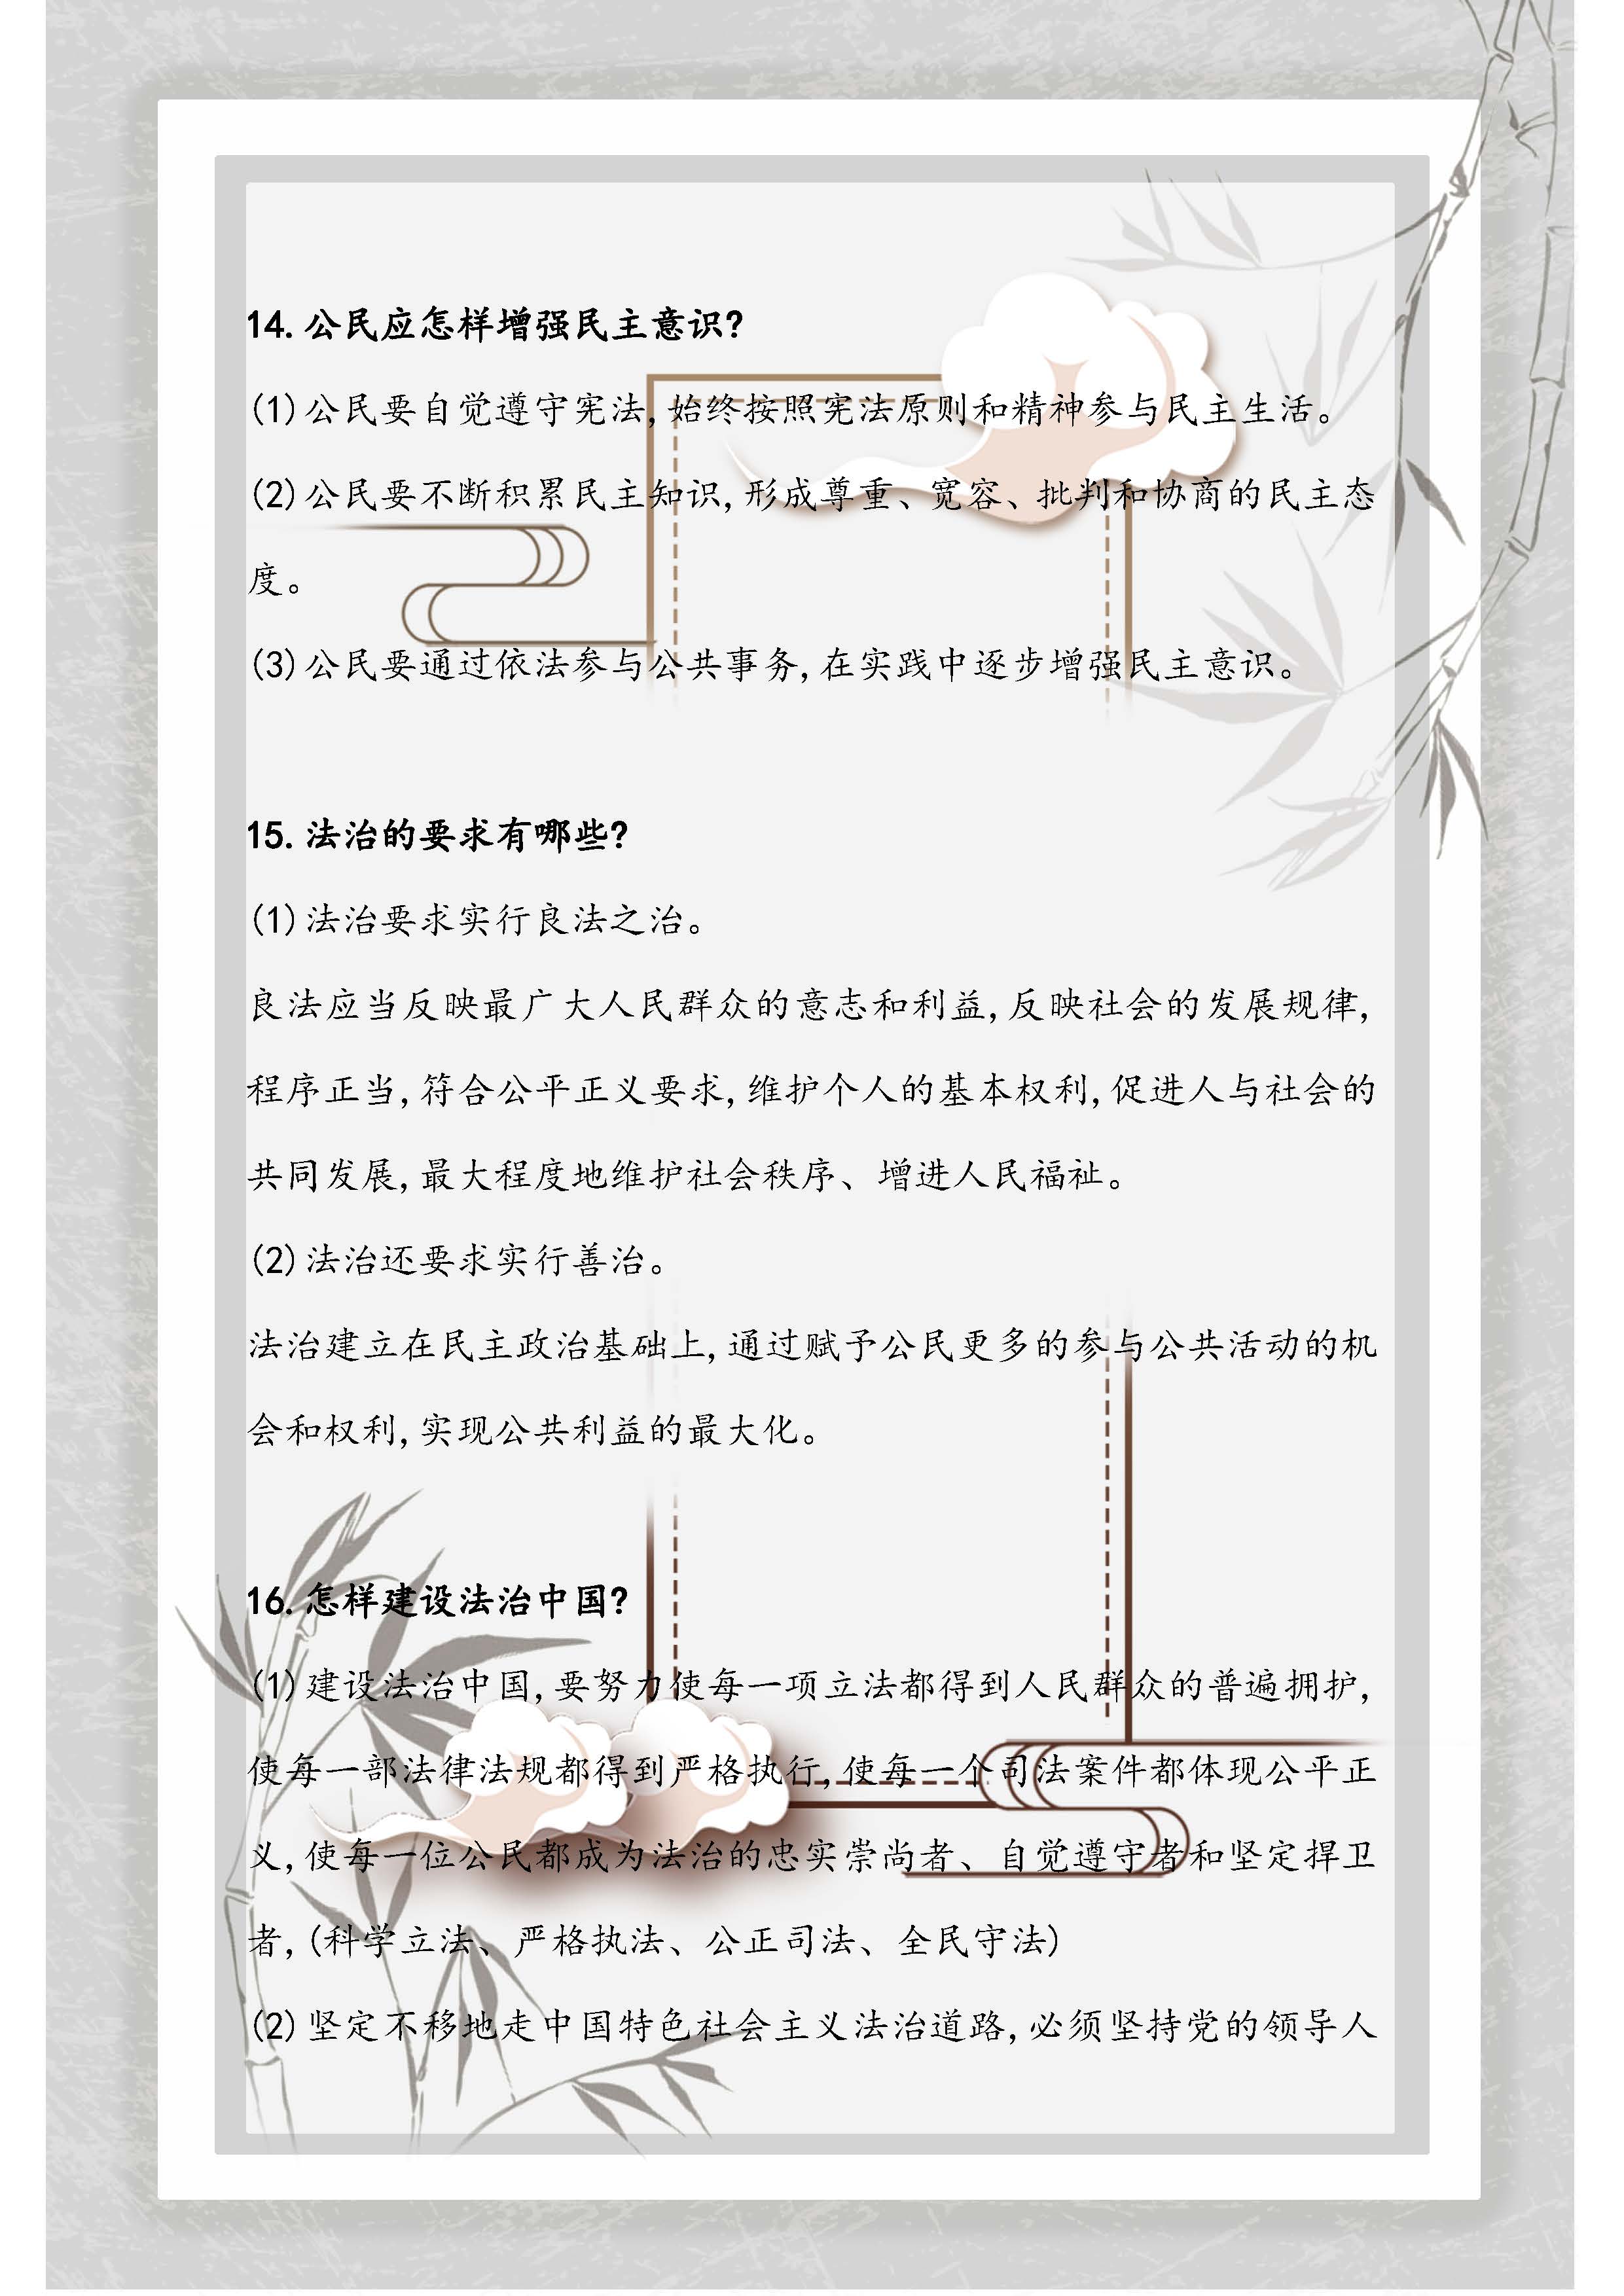 14.公民应怎样增强民主意识?
(1)公民要自觉遵守宪法,始终按照宪法原则和精神参与民主生活。
(2)公民要不断积累民主知识,形成尊重、宽容、批判和协商的民主态
度。
(3)公民要通过依法参与公共事务,在实践中逐步增强民主意识。
15.法治的要求有哪些?
(1)法治要求实行良法之治。
良法应当反映最广大人民群众的意志和利益,反映社会的发展规律,
程序正当,符合公平正义要求,维护个人的基本权利,促进人与社会的
共同发展,最大程度地维护社会秩序、增进人民福祉。
(2)法治还要求实行善治。
法治建立在民主政治基础上,通过赋予公民更多的参与公共活动的机
会和权利,实现公共利益的最大化。
16.怎样建设法治中国?
(1)建设法治中国,要努力使每一项立法都得到人民群众的普遍拥护,
使每一部法律法规都得到严格执行,使每一个司法案件都体现公平正
义,使每一位公民都成为法治的忠实崇尚者、自觉遵守者和坚定捍卫
者,(科学立法、严格执法、公正司法、全民守法)
(2)坚定不移地走中国特色社会主义法治道路,必须坚持党的领导人